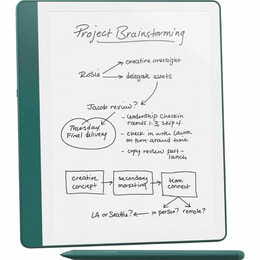 Project Brainstorming
creative oversight
Rosie
delegate assets
Jacob review?
Thursday
Final delivery
- Leadership Checkin
- check in with Laura
on turn around time
- copy review post-
launch
creative
concept
secondary
marketing
team
connect
LA or Seattle?
in person?
remote?